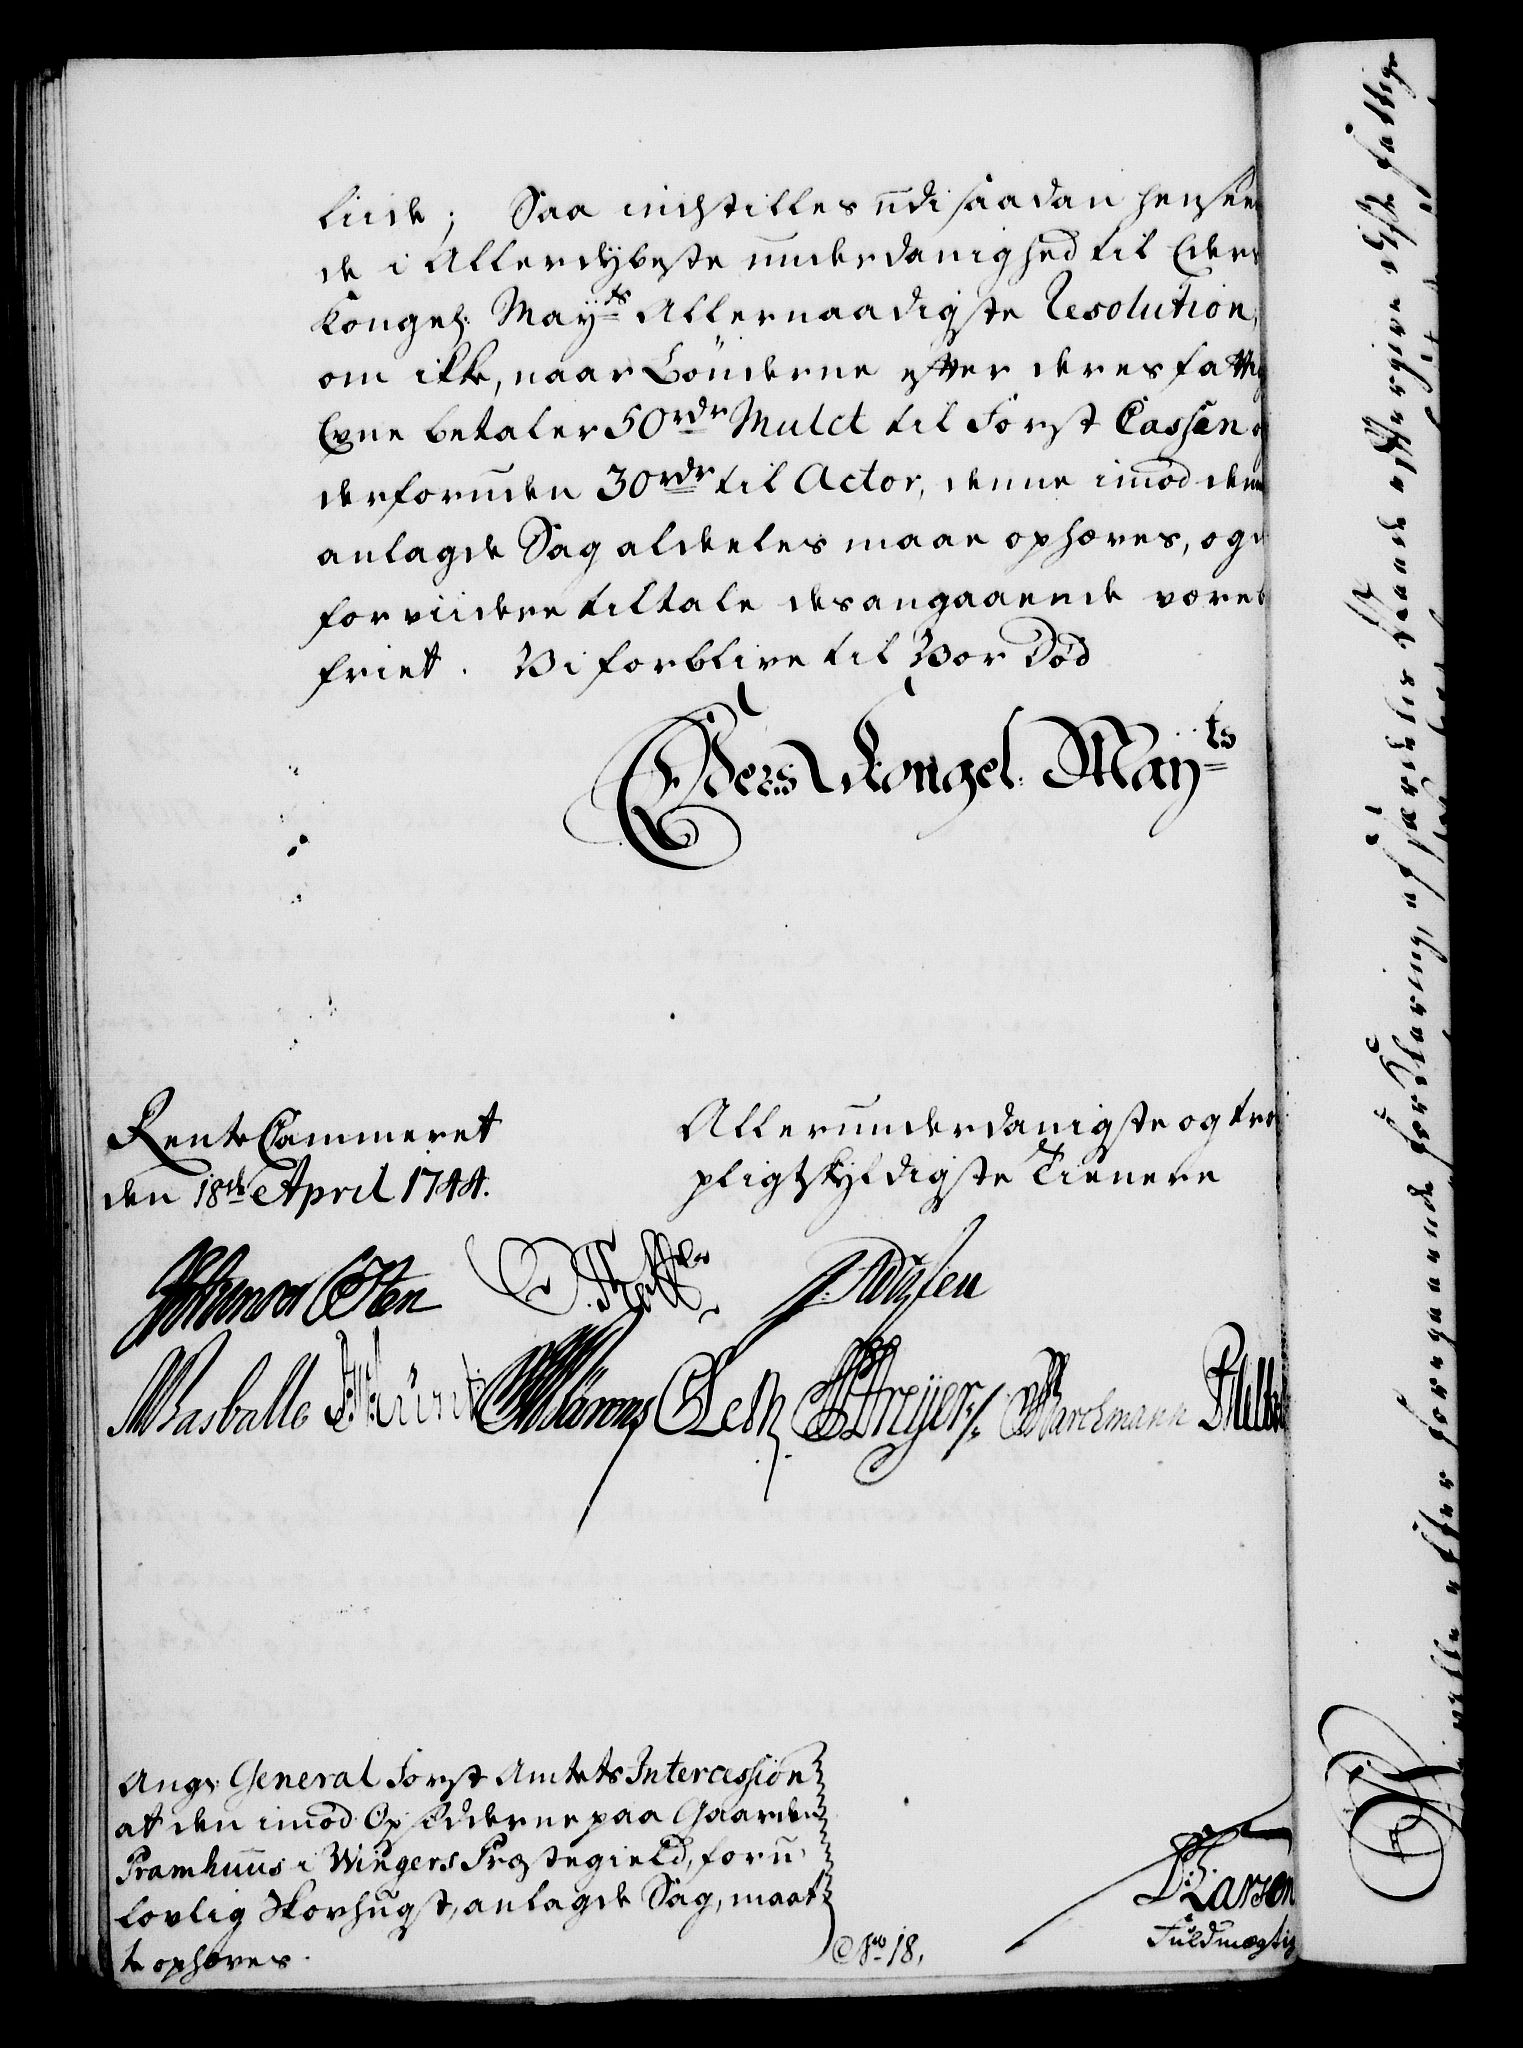 liide; Saa indstilles udi saadan henseen
de i Allerdybeste underdanighed til Eders
Kongel: May.ts Allernaadigste Resolution,
om ikke, naar Bönderne efter deres fattig
Evne betaler 50 rdr Mulct til Forst Cassen o
derforuden 30 rdr til Actor, denne imod dem
anlagde Sag aldeeles maae ophæves, og d
for viidere tiltale desangaaende være be
friet. Vi forblive til Vor Död
Eders Kongel. May.ts
Rente Cammeret
den 18de April 1744.
Allerunderdanigste og tro
pligtskyldigste Tienere
Rasballe
Leth
Dreyer
Angl: General Forst Amtets Intercession
at den imod Opsidderne paa Gaarden
Pramhuus i Wingers Præstegield, for u-
lovlig Skovhugst, anlagde Sag, maat
te ophæves.
No. 18.
Larsen
Fuldmægtig
efter foregaaende forklaring, af særdeles Naade